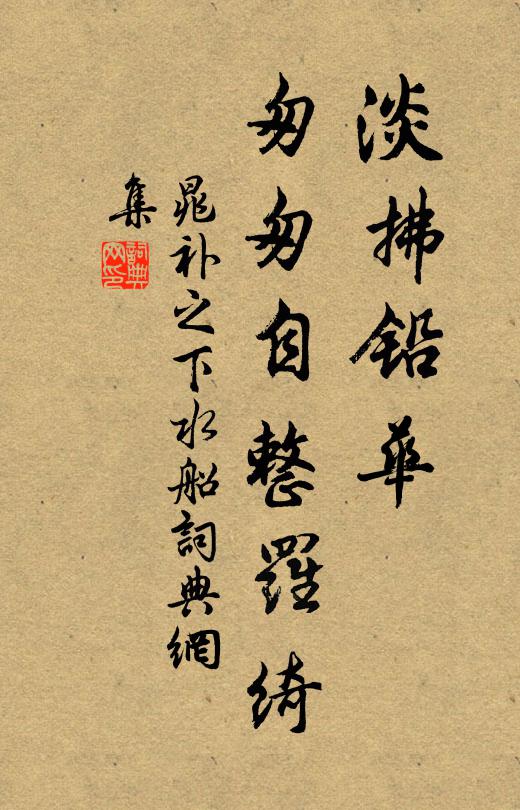 淡拂铅華
匆匆自整羅綺
晁补之下水船詞典網
集
詞典网印